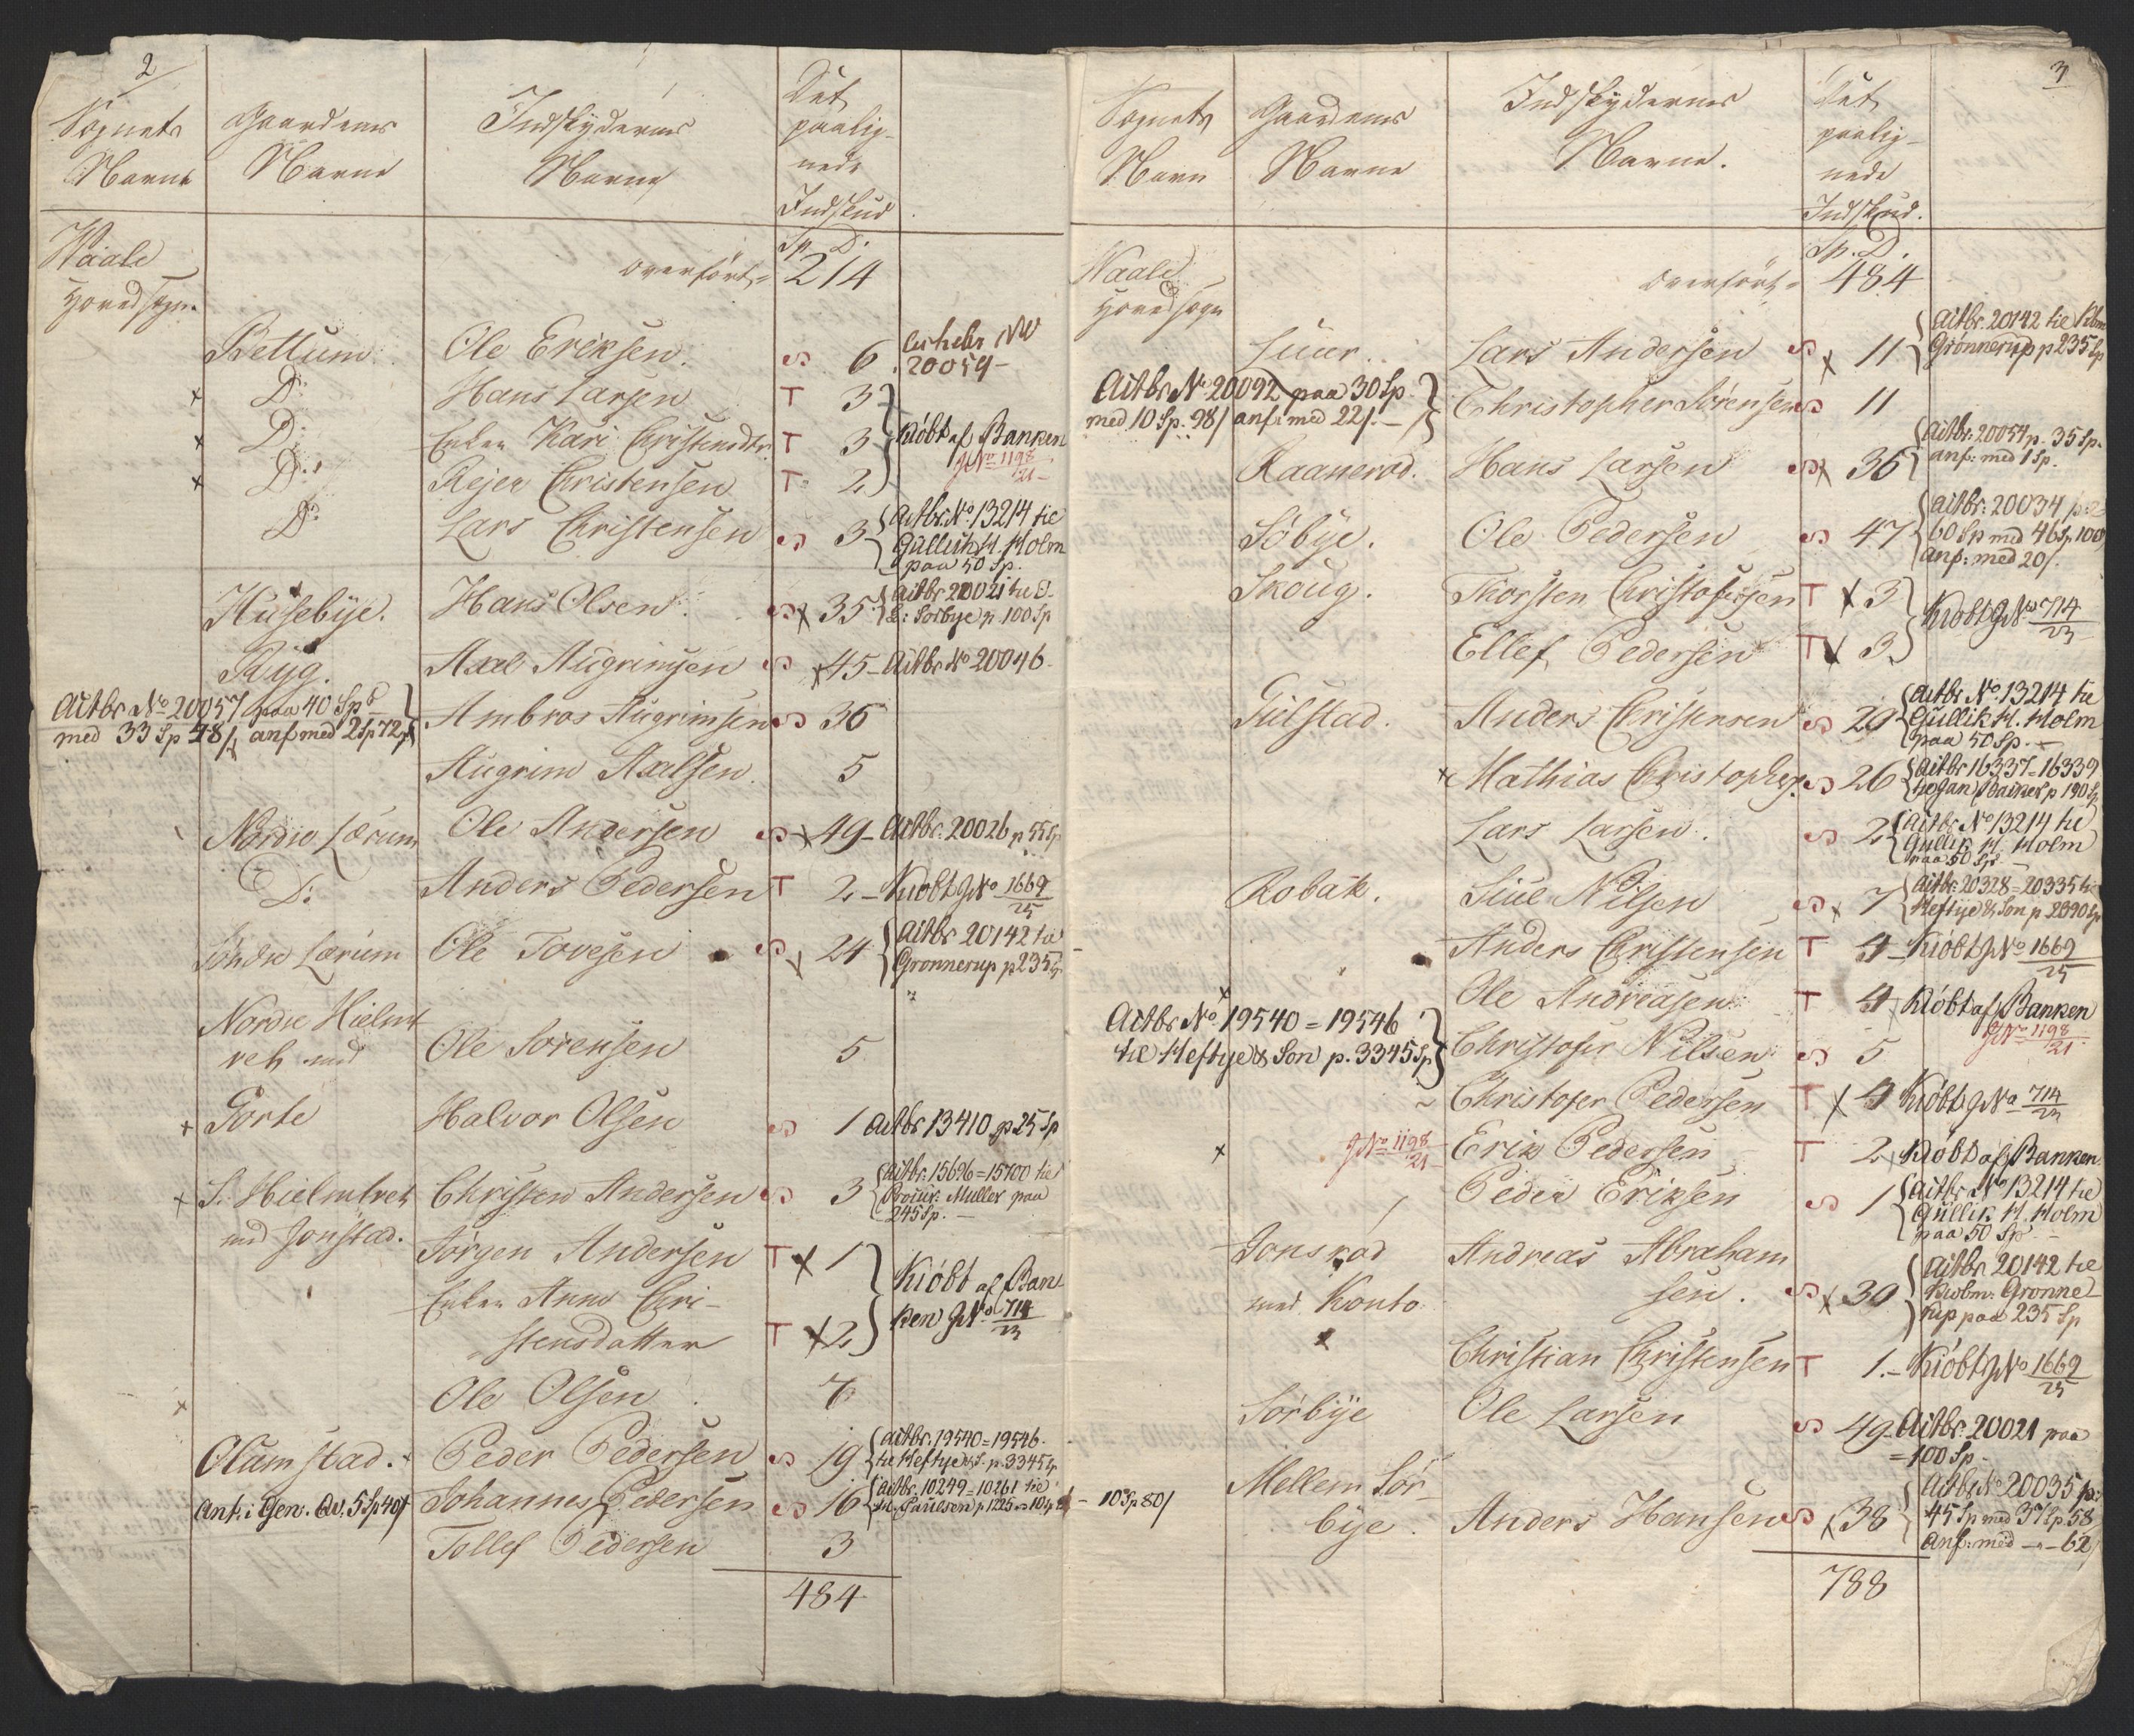 2
Sognets Navne
Gaardenes Navne
Indskydernes Navne
Det paalignede Indskud
Sp. D.
Waale Hovedsogn.
overført = 214
Bettum. Ole Eriksen. S 6 20059-
x Do Hans Larsen T 3
x Do Enken Kari Christensdtr. T 3 Kiöbt af Banken
JNo 1198/21
x Do Rejer Christensen T 2
Do Lars Christensen S 3 Actbr. No. 13214 til
Gullik H. Holm
paa 50 Sp.
Husebye. Hans Olsen. S x 35 Actbr 20021 til O.
L: Sørbye p. 100 Sp
Ryg. Axel Augrimsen S x 45 - Actbr No 20046-
Actbr No 20057 paa 40 Sp
med 33 Sp 48/ anf med 2 Sp 72/
Ambros Augrimsen S 36
Augrim Axelsen. 5
Nordre Lærum Ole Andersen S x 49 - Actbr. 20026 p 55 Sp
Do: Anders Pedersen T 2 - Kiöbt JNo 1669/25
Söndre Lærum Ole Tovesen S x 24 Actbr 20142 til
Grønnerup p 235 Sp.
Nordre Hielmt
vet med Ole Sørensen 5
x Gorte Halvor Olsen S 1 Actbr 13410 p 25 Sp
x S. Hielmtvet Christen Andersen S 3 Actbr. 15696 = 15700 til
Procur: Muller paa
245 Sp. -
med Jonstad. Jørgen Andersen T x 1
Kiöbt af Ban-
ken JNo 714/23
Enken Anne Chri-
stensdatter T x 2
x Ole Olsen 7
Olumstad. x Peder Pedersen S 19 Actbr. 19540 = 19546
til Heftye & S. p. 3345 Sp
Ant. i Gen. Qv. 5 Sp 40/ Johannes Pedersen S 16 Actbr. 10249 = 10261 til
Paulsen p 1225 - 10 Sp 80/
Tollef Pedersen 3
484
3
Sognets Navn
Gaardenes Navne
Indskydernes Navne.
Det paalignede Indskud.
Sp. D.
Waale Hovedsogn
overført = 484
Suur. Lars Andersen S x 11 Actbr. 20142 til Kbm
Grønnerup p 235 Sp
Actbr No 20092 paa 30 Sp.
med 10 Sp. 98/ anf: med 22/. -
Christopher Sörensen S 11
Raanerød. Hans Larsen S x 36 Actbr: 20054 p. 35 Sp.
anf: med 1 Sp.
Söbye. Ole Pedersen S 47 Actbr: 20034 p:
60 Sp med 46 Sp 100/
anf: med 20/.
Skoug. Thorsten Christofersen T x 3
Kiöbt JNo 714/23
Ellef Pedersen T x 3
Gulstad. Anders Christensen S 29 Actbr No. 13214 til
Gullik H. Holm
paa 50 Sp. -
x Mathias Christophers. S 26 Actbr 16337 = 16339
p 190 Sp
Lars Larsen. S 2 Actbr No 13214 til
Gullik H. Holm
paa 50 Sp. -
Robak. Siul Nilsen S x 7 Actbr: 20328 = 20335 til
Heftye & Søn p 2390 Sp
Anders Christensen T 4 - Kiöbt JNo 1669/25
x Ole Andreasen T 4 Kiöbt af Banken
JNo 1198/21
Actbr No 19540 = 19546
til Heftye & Søn p. 3345 Sp
Christofer Nilsen S 5
Christofer Pedersen T x 4 Kiöbt JNo 714/23
x JNo 1198/21 Erik Pedersen T 2 Kiöbt af Banken
Peder Eriksen S 1 Actbr No 13214 til
Gullik H. Holm
paa 50 Sp. -
Jonsrød
med Konto
Andreas Abraham
sen. S x 30 Actbr 20142 til
Kiøbm. Grønne-
rup paa 235 Sp
x Christian Christensen T 1. - Kiöbt JNo 1669/25
Sørbye Ole Larsen S 49 - Actbr. 20021 paa
= 100 Sp -
Mellem Sör-
bye. Anders Hansen S x 38 Actbr No 20035 p.
45 Sp med 37 Sp. 58
anf: med - " - 62/
788